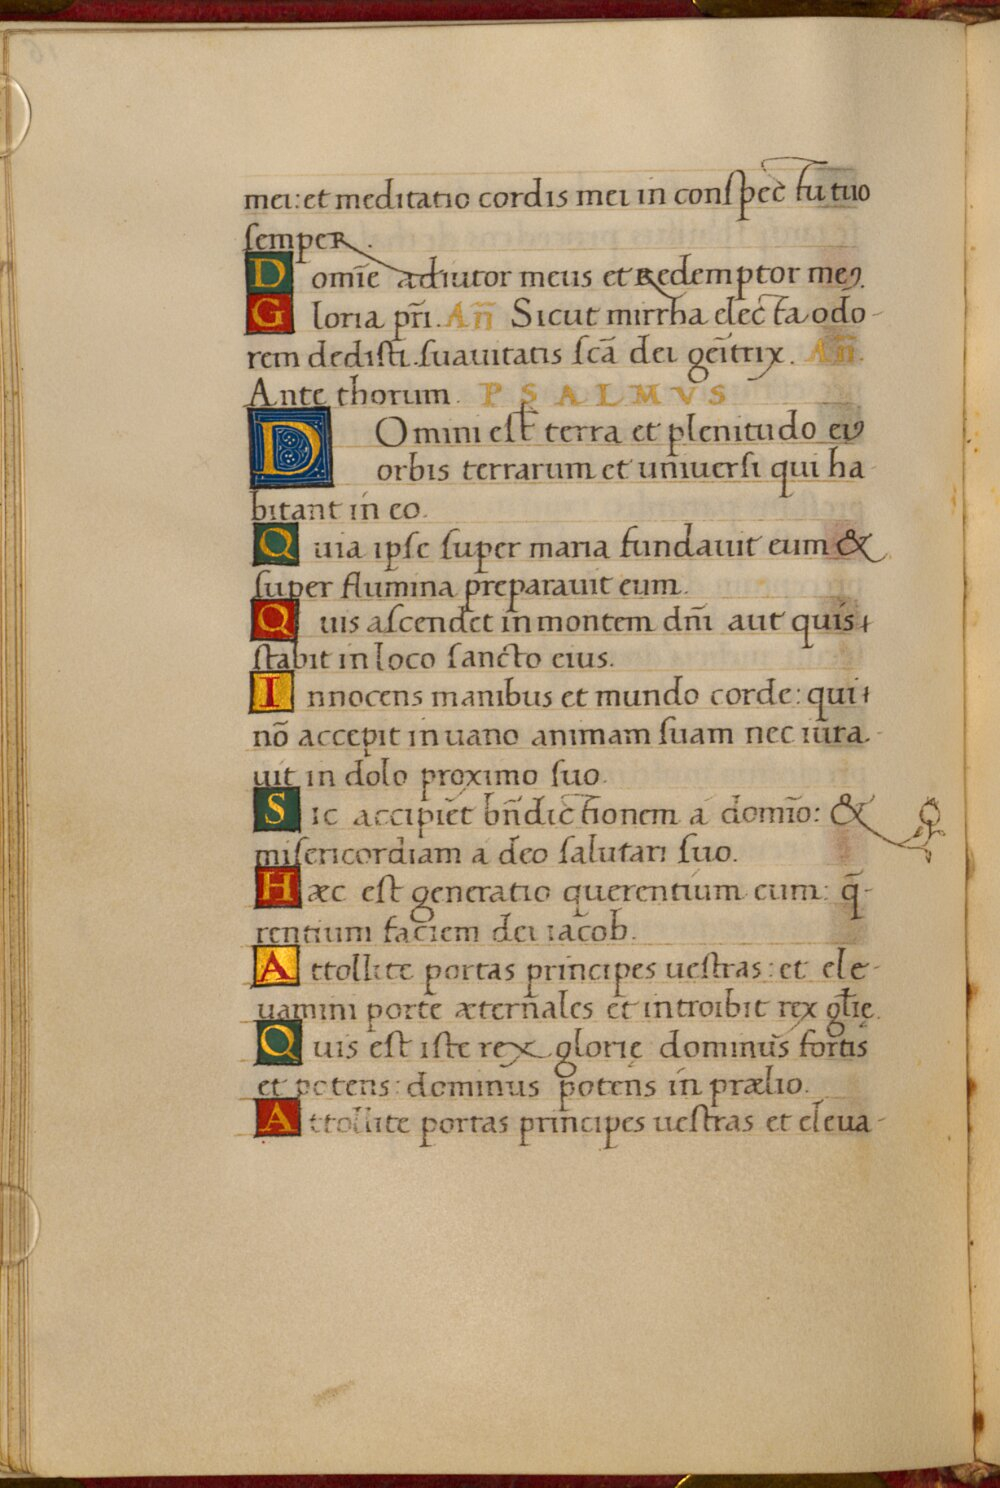 mei: et meditatio cordis mei in conſpectu tuo
ſempeR.
Domīe adiutor meus et Redemptor meꝰ.
Gloria pr̄i. An̄ Sicut mirrha electa odo-
rem dediſti. ſuauitatis ſcā dei geīitrix. An̄.
Ante thorum. PSALMVS
DOmini eſt terra et plenitudo eiꝰ
orbis terrarum et uniuerſi qui ha-
bitant in eo.
Quia ipſe ſuper maria fundauit eum &
ſuper flumina preparauit eum.
Quis aſcendet in montem dn̄i aut quis
ſtabit in loco ſancto eius.
Innocens manibus et mundo corde: qui
nō accepit in uano animam ſuam nec iura-
uit in dolo proximo ſuo.
Sic accipiēt bn̄dictionem a domīo: &
miſericordiam a deo ſalutari ſuo.
Hæc eſt generatio querentium eum: q̄-
rentium faciem dei iacob.
Attollite portas principes ueſtras: et ele-
uamini porte æternales et introibit rex gl̄ię.
Quis eſt iſte rex glorię dominus fortis
et potens: dominus potens in prælio.
Attollite portas principes ueſtras et eleua-